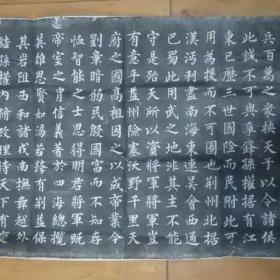 兵百萬之眾挾天子以令諸侯
此誠不可與爭鋒孫權據有江
東已歷三世國險而民附此可
用為援而不可圖也荊州北據
漢沔利盡南海東連吳會西通
巴蜀此用武之地非其主不能
守是殆天所以資將軍將軍豈
有意乎益州險塞沃野千里天
府之國高祖因之以成帝業今
劉璋暗弱民殷國富而不知存
恤智能之士思得明君將軍既
帝室之胄信義著於四海總攬
英雄思賢如渴若跨有荊益保
其岩阻西和諸戎南撫夷越外
結孫權內修政理待天下有變